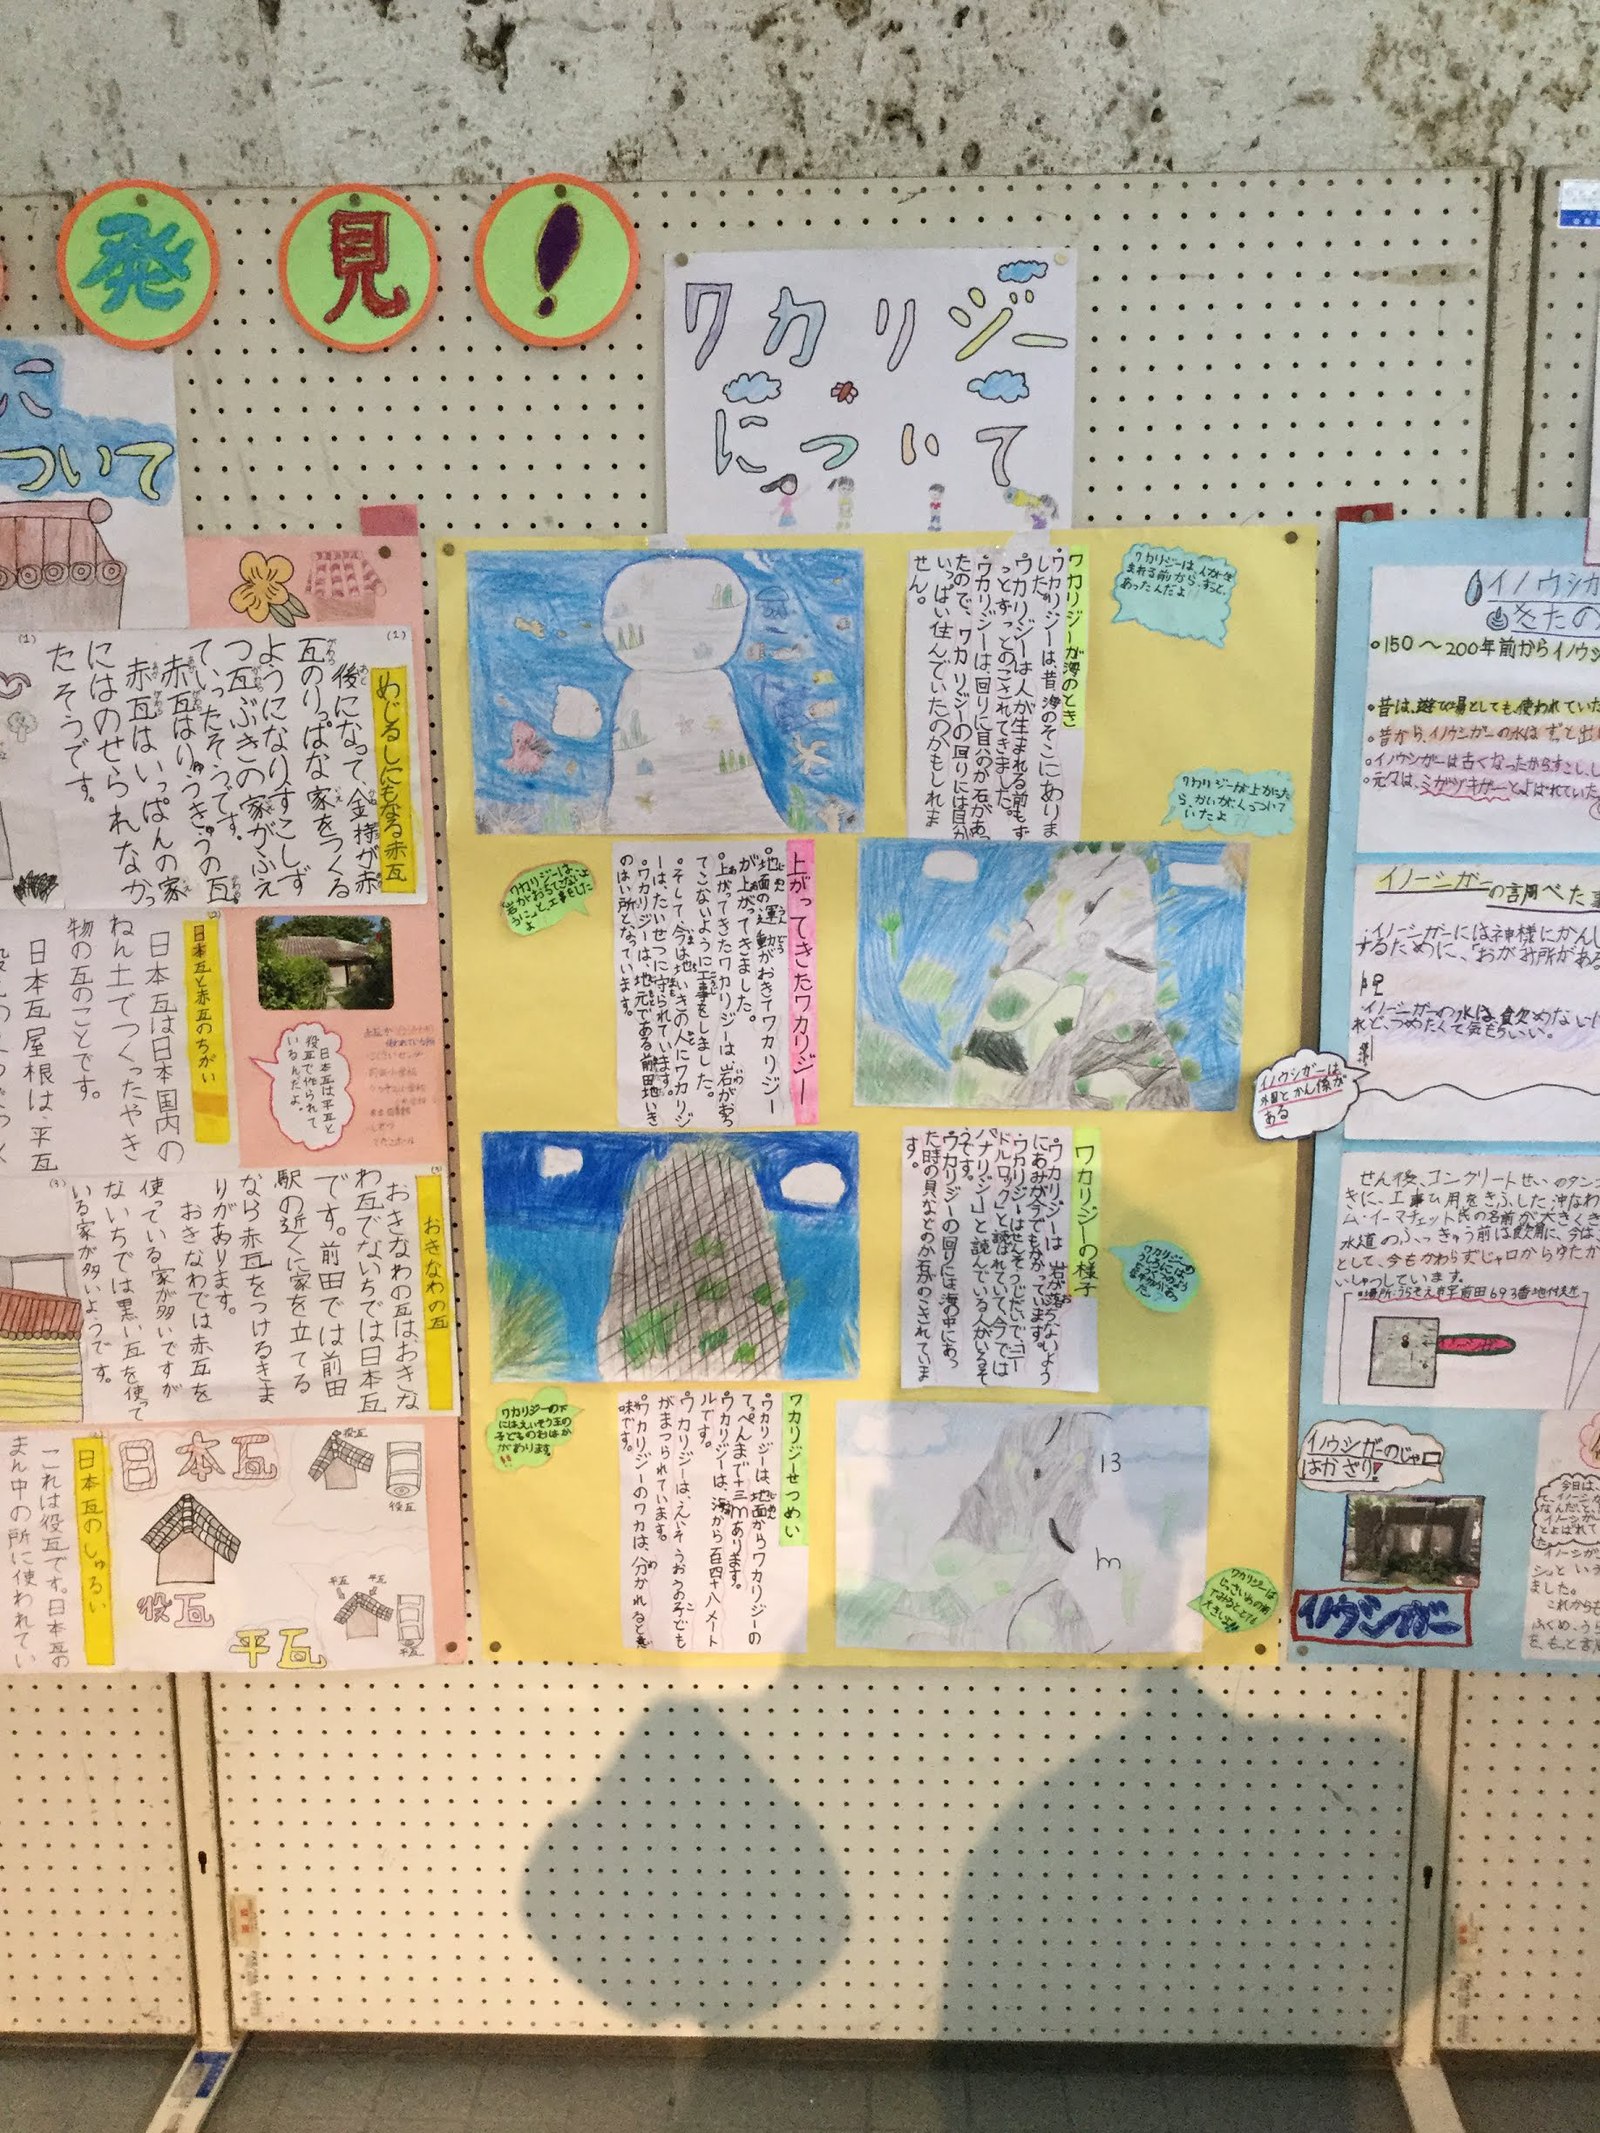 発見!
に
ついて
めじるしにもなる赤瓦
後になって、金持が赤
瓦のりっぱな家をつくる
ようになりすこしず
つ瓦ぶきの家がふえ
ていったそうです。
赤瓦はりゅうきゅうの瓦
赤瓦はいっぱんの家
にはのせられなかっ
たそうです。
日本瓦と赤瓦のちがい
日本瓦は日本国内の
ねん土でつくったやき
物の瓦のことです。
日本瓦屋根は、平瓦
日本瓦は平瓦と
役瓦で作られて
いるんだよ。
おきなわの瓦
おきなわの瓦はおきな
わ瓦でないちでは日本瓦
です。前田では前田
駅の近くに家を立てる
なら赤瓦をつけるきま
りがあります。
おきなわでは赤瓦を
使っている家が多いですが
ないちでは黒い瓦を使って
いる家が多いようです。
日本瓦のしゅるい
これは役瓦です。日本瓦の
まん中の所に使われてい
日本瓦
役瓦
平瓦
役瓦
平瓦
平瓦
平瓦
ワカリジー
について
ワカリジーが海のとき
ワカリジーは、昔海のそこにありま
した。
ワカリジーは人が生まれる前もず
っとずっとのこされてきました。
ワカリジーは、回りに貝のか石があっ
たので、ワカリジーの回りには貝が
いっぱい住んでいたのかもしれま
せん。
ワカリジーは、人が生
まれる前から、ずっと、
あったんだよ
ワカリジーが上がにた
ら、かいがくっついて
いたよ
上がってきたワカリジー
地面の運動がおきてワカリジー
が上がってきました。
上がってきたワカリジーは岩がおち
てこないように工事をしました。
そして、今は地いきの人にワカリジ
ーは、たいせつに守られています。
ワカリジーは、地元である前田地いき
のはい所となっています。
ワカリジーは、
岩がおちてこないよ
うに、と、工事をした
よ
ワカリジーの様子
ワカリジーは岩が落ちないよう
にあみが今でもかかっています。
ワカリジーはせんそうじだいで、ニー
ドルロック」と読ばれていて、今では
ハナリジー」と読んでいる人がいるそ
うです。
ワカリジーの回りには海の中にあっ
た時の貝などのか石がのこされていま
す。
ワカリジーせつめい
ワカリジーは、地面からワカリジーの
てっぺんまで十三mあります。
ワカリジーは、海から百四十八メート
ルです。
ワカリジーは、えいそうおうの子ども
がまつられています。
ワカリジーのワカは、分かれると意
味です。
ワカリジーの下
にはえいそう王の
子どものおはか
があります。
ワカリジーは
じっさいめの前
でみるととても
大きいよ!!
13
m
イノウシガ
きたの
150〜200年前からイノウシ
昔は、遊び場としても、使われていた
昔から、イノウシガーの水はずっと出
イノウシガーは古くなったからすこし、し
元々は、ミガヅキガーとよばれていた
イノーシガーの言周べた事
イノーシガーには神様にかんし
するために、「おがみ所がある
イノーシガーの水は飲めないけ
れど、つめたくて気もちいい。
イノウシガーは
外国とかん係が
ある
せん後、コンクリートせいのタン
きに、工事ひ用をきふした沖なわ
ム・イーマチェット氏の名前が大きくき
水道のふっきゅう前は飲用に、今は、
として、今もかわらずじゃ口からゆたか
いしゅつしています。
場所:うらそえ市字前田693番地付近
イノウシガーのじゃ口
はかざり!
イノウシガー
今日は、